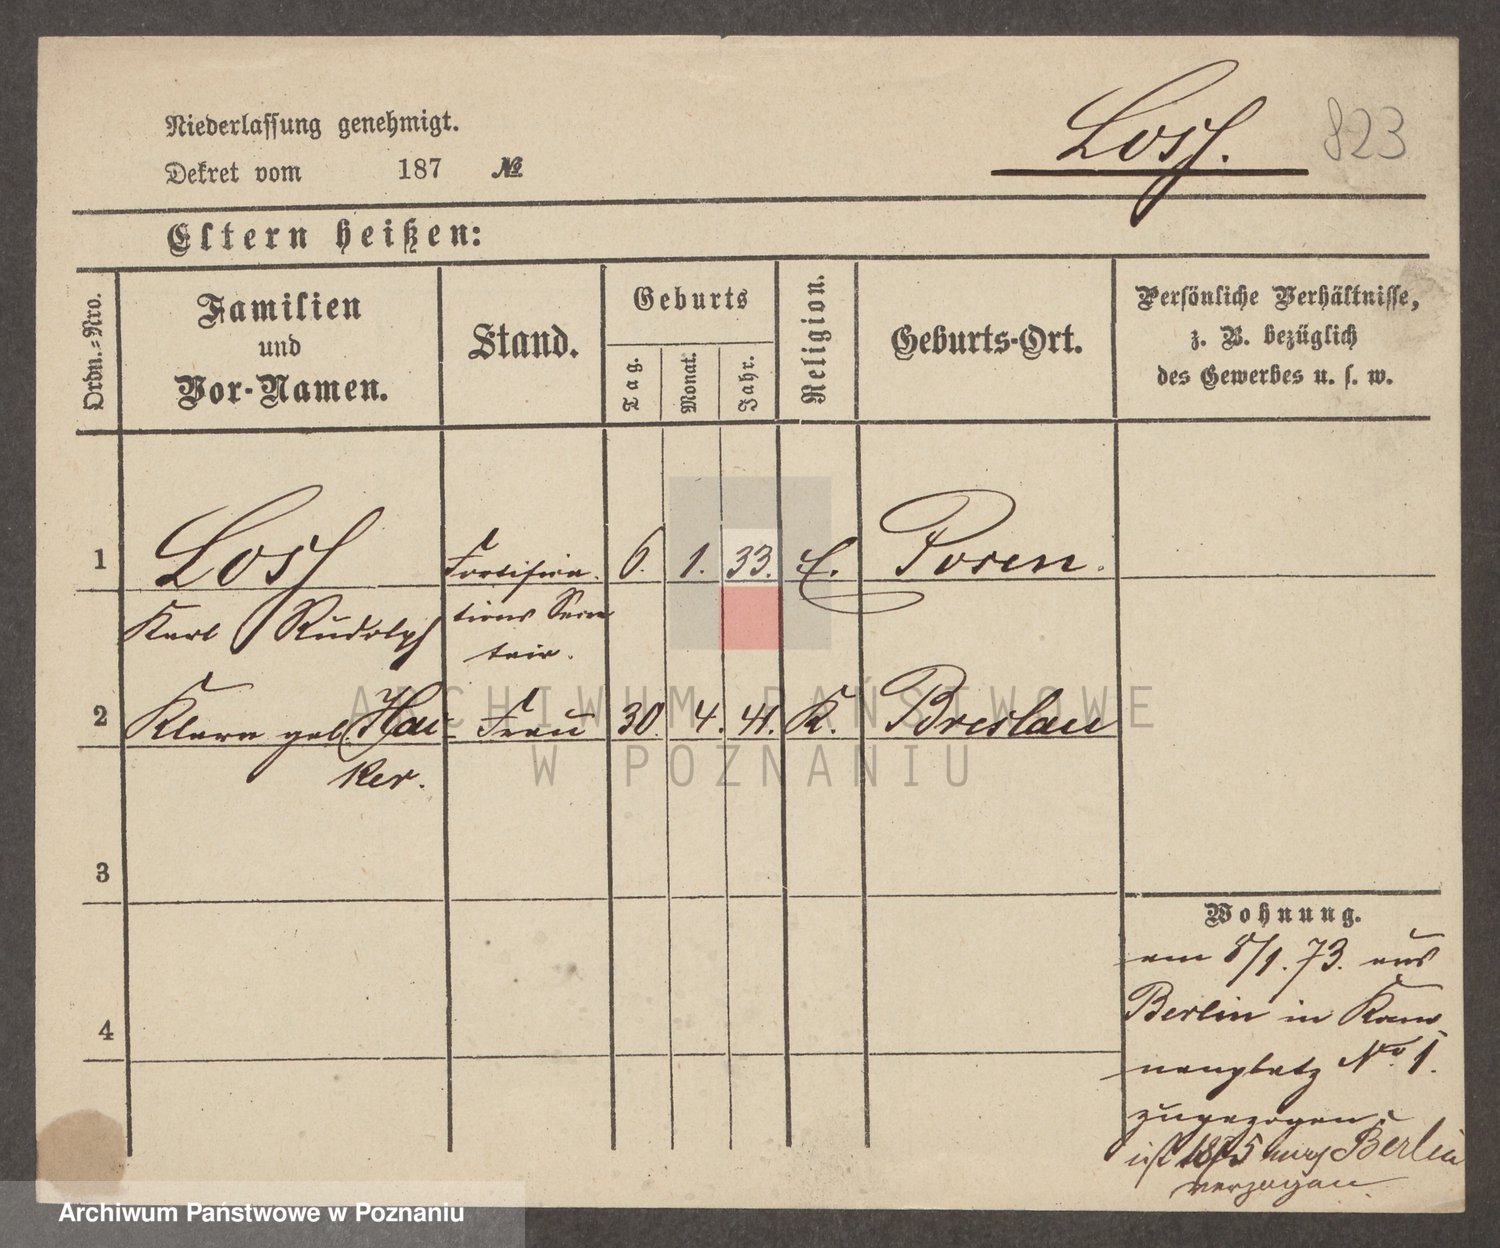 Niederlassung genehmigt.
Dekret vom 187 №
Losf. 823
Eltern heißen:
Ordn.=Nro.
Familien
und
Vor-Namen.
Stand.
Geburts
Tag.
Monat.
Jahr.
Religion.
Geburts-Ort.
Persönliche Verhältnisse,
z. B. bezüglich
des Gewerbes u. s. w.
1 Losf Fortifica- 6. 1. 33. E. Posen.
Karl Rudolph tions Secre
tair.
2 Klara geb. Hau- Frau 30. 4. 41. K. Breslau
ker.
3
4
Wohnung.
am 8/1. 73. aus
Berlin in Kano-
nenplatz No. 1.
zugezogen.
ist 1875 nach Berlin
verzogen
ARCHIWUM PAŃSTWOWE
W POZNANIU
Archiwum Państwowe w Poznaniu